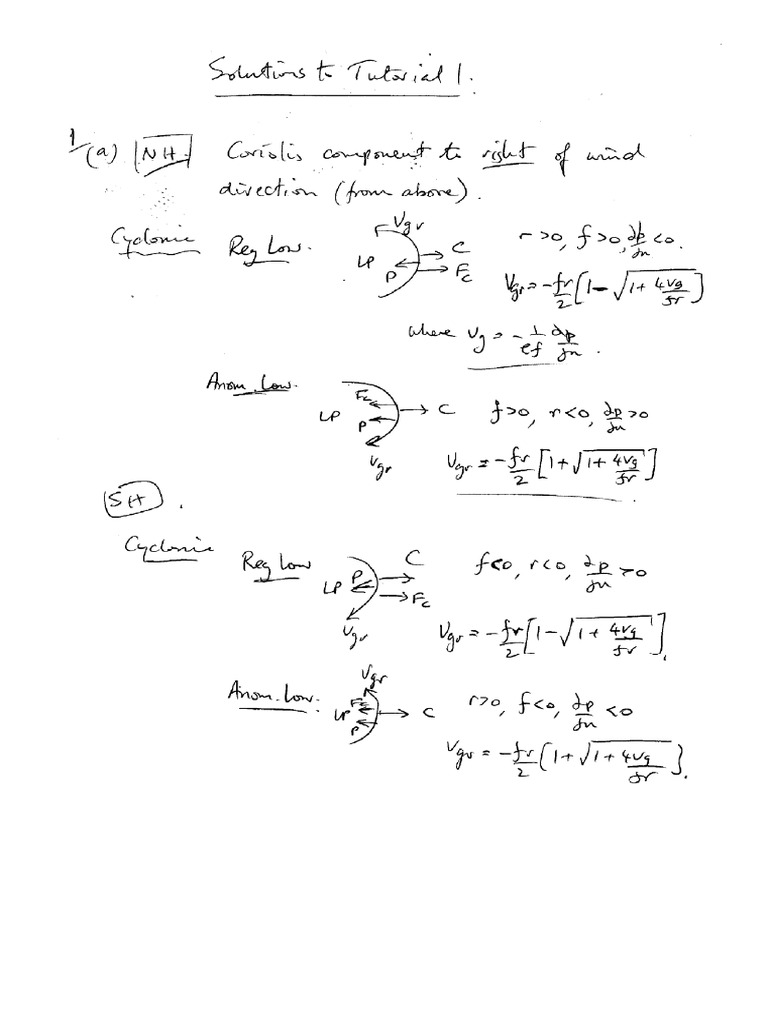 Solutions to Tutorial 1.
1/(a) NH. Coriolis component to right of wind
direction (from above).
Cyclonic Reg Low. Vgr LP P C Fc r>0, f>0, ∂p/∂n<0.
Vgr = -fr/2 [1 - √(1 + 4Vg/fr)]
where Vg = -1/ρf ∂p/∂n.
Anom. Low. LP Fc P Vgr C f>0, r<0, ∂p/∂n>0
Vgr = -fr/2 [1 + √(1 + 4Vg/fr)]
SH.
Cyclonic Reg Low LP P Vgr C Fc f<0, r<0, ∂p/∂n>0
Vgr = -fr/2 [1 - √(1 + 4Vg/fr)].
Anom. Low. Vgr Fc LP P C r>0, f<0, ∂p/∂n<0
Vgr = -fr/2 [1 + √(1 + 4Vg/fr)].